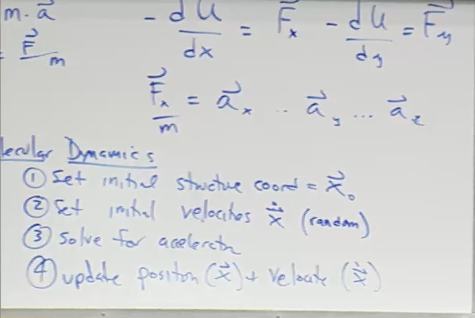 m · a⃗
- dU/dx = F⃗x - dU/dy = F⃗y
= F⃗/m
F⃗x/m = a⃗x .. a⃗y ... a⃗z
lecular Dynamics
① Set initial structure coord = x⃗₀
② Set initial velocites ẋ⃗ (random)
③ Solve for acceleratn
④ update position (x⃗) + velocite (ẋ⃗)